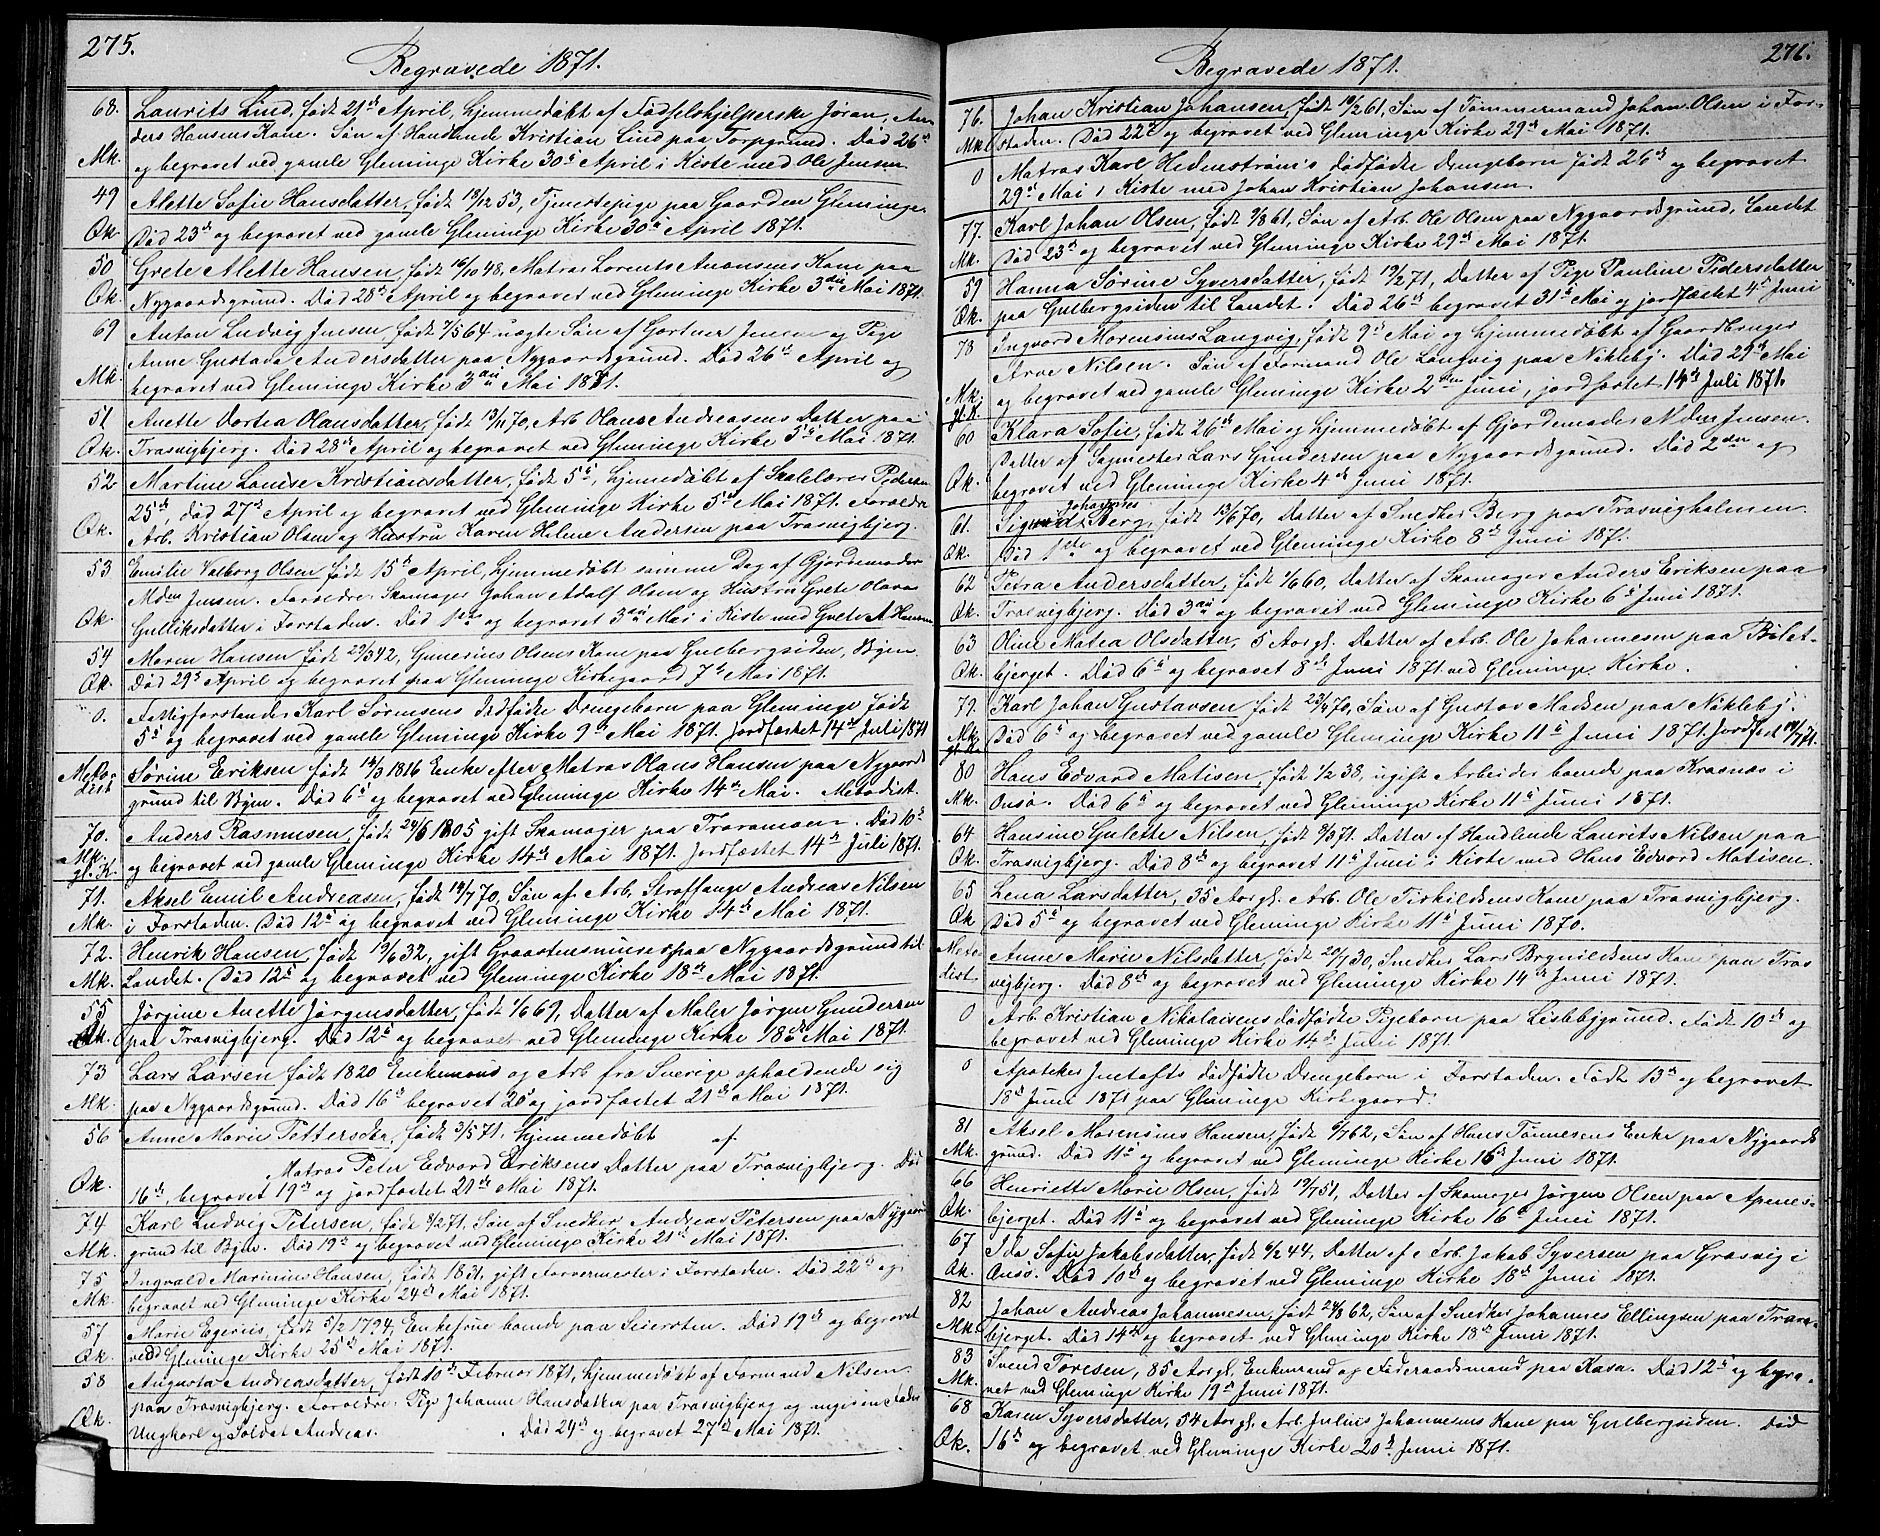 275.
Begravede 1871.
68. Laurits Lind, født 21de April, hjemmedøbt af Fødselshjelperske Jøran, An-
ders Hansens Kone. Søn af Handlende Kristian Lind paa Torpgrund. Død 26de
Mk. og begravet ved gamle Gleminge Kirke 30te April i Kiste med Ole Jensen
49 Alette Sofie Hansdatter, født 18/12 53, Tjenestepige paa Gaarden Gleminge.
Qk. Død 23de og begravet ved gamle Gleminge Kirke 30te April 1871.
50 Grete Alette Hansen, født 16/10 48, Matros Lorents Anonsens Kone paa
Qk. Nygaardsgrund. Død 28de April og begravet ved Gleminge Kirke 3die Mai 1871.
69 Anton Ludvig Jensen, født 7/5 64 uægte Søn af Gartner Jensen og Pige
Anne Gustava Andersdatter paa Nygaardsgrund. Død 26de April og
Mk. begravet ved Gleminge Kirke 3die Mai 1871.
51 Anette Dortea Olausdatter, født 13/11 70, Arb. Olaus Andreasens Datter paa
Qk. Trosvigbjerg. Død 28de April og begravet ved Gleminge Kirke 5te Mai 1871.
52 Martine Louise Kristiansdatter, født 5te, hjemmedøbt af Skolelærer Pedersen
25de, død 27de April og begravet ved Gleminge Kirke 5te Mai 1871. Forældre
Qk. Arb. Kristian Olsen og Hustru Karen Helene Andersen paa Trosvigbjerg.
53 Emilie Valborg Olsen født 15de April, hjemmedøbt samme Dag af Gjordemoder
Mden Jensen. Forældre: Skomager Johan Adolf Olsen og Hustru Grete Olava
Qk. Gulliksdatter i Forstaden. Død 1ste og begravet 3die Mai i Kiste med Grete A Hansen
54 Maren Hansen født 29/3 42, Gunerius Olsens Kone paa Gulbergsiden, Byen.
Qk. Død 29de April og begravet paa Gleminge Kirkegaard 7de Mai 1871.
0. Fattigforstander Karl Sørensens dødfødte Drengebarn paa Gleminge født
5te og begravet ved gamle Gleminge Kirke 9de Mai 1871. Jordfæstet 14de Juli 1871
Meto- Sørine Eriksen født 14/3 1816 Enke efter Matros Olaus Hansen paa Nygaards
dist grund til Byen. Død 6te og begravet ved Gleminge Kirke 14de Mai. Metodist.
70. Anders Rasmusen, født 24/6 1805 gift Skomager paa Traramoen. Død 10de
Mk. gl. K. og begravet ved gamle Gleminge Kirke 14de Mai 1871. Jordfæstet 14de Juli 1871.
71. Aksel Emil Andreasen, født 14/7 70, Søn af Arb. Straffange Andreas Nilsen
Mk. i Forstaden. Død 12te og begravet ved Gleminge Kirke 14de Mai 1871.
72. Henrik Hansen, født 19/6 32, gift Graastensmurer paa Nygaardsgrund til
Mk. Landet. Død 12te og begravet ved Gleminge Kirke 18de Mai 1871.
55 Jørgine Anette Jørgensdatter, født 1/6 69, Datter af Maler Jørgen Gundersen
Qk. paa Trosvigbjerg. Død 12te og begravet ved Gleminge Kirke 18de Mai 1871.
73 Lars Larsen født 1820 Enkemand og Arb fra Sverige opholdende sig
Mk. paa Nygaardsgrund. Død 16de begravet 20 og jordfæstet 21de Mai 1871.
56 Anne Marie Pettersdtr, født 3/5 71. hjemmedøbt af
Matros Peter Edvard Eriksens Datter paa Trosvigbjerg. Død
Qk. 16de, begravet 19de og jordfæstet 21de Mai 1871.
74 Karl Ludvig Petersen, født 9/2 71, Søn af Snedker Andreas Petersen paa Nygaards
Mk. grund til Byen. Død 19de og begravet ved Gleminge Kirke 21de Mai 1871.
75 Ingvald Marinius Hansen, født 1831, gift Farvermester i Forstaden. Død 22de og
Mk. begravet ved Gleminge Kirke 24de Mai 1871.
57 Marie Egerius, født 5/2 1794, Enkefrue boende paa Seiersten. Død 19de og begravet
Qk. ved Gleminge Kirke 25de Mai 1871.
58 Augusta Andreasdatter, født 10de Februar 1871, hjemmedøbt af Formand Nilsen
paa Trosvigbjerg. Forældre: Pige Johanne Hansdatter paa Trosvigbjerg og angiven Fader
Qk. Ungkarl og Soldat Andreas. Død 24de og begravet 27de Mai 1871.
276.
Begravede 1871.
76. Johan Kristian Johansen, født 10/2 61, Søn af Tømmermand Johan Olsen i For-
Mk. staden. Død 22de og begravet ved Gleminge Kirke 29de Mai 1871.
0 Matros Karl Hedenstrøm's dødfødte Drengebarn født 26de og begravet
29de Mai i Kiste med Johan Kristian Johansen.
77. Karl Johan Olsen, født 9/8 61, Søn af Arb. Ole Olsen paa Nygaardsgrund, Landet
Mk. Død 23de og begravet ved Gleminge Kirke 29de Mai 1871.
59 Hanna Sørine Syversdatter, født 19/2 71, Datter af Pige Pauline Pedersdatter
Qk. paa Gulbergsiden til Landet. Død 26de begravet 31te Mai og jordfæstet 4de Juni
78 Ingvord Morensius Langvig, født 9de Mai og hjemmedøbt af Gaardbruger
Arve Nilsen. Søn af Formand Ole Langvig paa Nøkleby. Død 29de Mai
Mk. gl. K. og begravet ved gamle Gleminge Kirke 2den Juni, jordfæstet 14de Juli 1871.
60 Klara Sofie, født 26de Mai og hjemmedøbt af Gjordemoder Mden Jensen.
Datter af Sagmester Lars Gundersen paa Nygaardsgrund. Død 2den og
Qk. begravet ved Gleminge Kirke 4de Juni 1871.
61. Johannes Berg, født 13/6 70, Datter af Snedker Berg paa Trosvigholmen.
Qk. Død 1ste og begravet ved Gleminge Kirke 8de Juni 1871.
62 Petra Andersdatter, født 1/6 60, Datter af Skomager Anders Eriksen paa
Qk. Trosvigbjerg. Død 3die og begravet ved Gleminge Kirke 6te Juni 1871.
63 Oline Matea Olsdatter, 5 Aar gl. Datter af Arb. Ole Johannesen paa Bølet-
Qk. bjerget. Død 6te og begravet 8de Juni 1871 ved Gleminge Kirke.
79. Karl Johan Gustavsen født 23/4 70, Søn af Gustav Madsen paa Nøkleby.
Mk. gl. K. Død 6te og begravet ved gamle Gleminge Kirke 11te Juni 1871. Jordfæst 14/7 71.
80 Hans Edvard Matisen, født 1/2 38, ugift Arbeider boende paa Krosnæs i
Mk. Onsø. Død 6te og begravet ved Gleminge Kirke 11te Juni 1871.
64 Hansine Gulette Nilsen, født 9/3 71. Datter af Handlende Laurits Nilsen paa
Qk. Trosvigbjerg. Død 8de og begravet 11te Juni i Kiste med Hans Edvard Matisen.
65 Lena Larsdatter, 35 Aar gl. Arb. Ole Terkildsens Kone paa Trosvigbjerg.
Qk Død 5te og begravet ved Gleminge Kirke 11te Juni 1870.
Meto- Anne Marie Nilsdatter, født 20/7 30, Snedker Lars Brynildsens Kone paa Tros
dist vigbjerg. Død 8de og begravet ved Gleminge Kirke 14de Juni 1871.
0 Arb. Kristian Nikolaisens dødfødte Pigebarn paa Lislebygrund. Født 10de og
begravet ved Gleminge Kirke 14de Juni 1871.
0 Apoteker dødfødte Drengebarn i Forstaden. Født 13de og begravet
18de Juni 1871 paa Gleminge Kirkegaard.
81 Aksel Morensius Hansen, født 9/7 62, Søn af Hans Tønnesens Enke paa Nygaards
Mk. grund. Død 11te og begravet ved Gleminge Kirke 16de Juni 1871.
66 Henriette Marie Olsen, født 19/7 51, Datter af Skomager Jørgen Olsen paa Apenes-
Qk. bjerget. Død 11te og begravet ved Gleminge Kirke 16de Juni 1871.
67 Ida Sofie Jakobsdatter, født 6/2 44, Datter af Arb. Jakob Syversen paa Græsvig i
Qk. Onsø. Død 10de og begravet ved Gleminge Kirke 18de Juni 1871.
82 Johan Andreas Johannesen, født 24/8 62, Søn af Snedker Johannes Ellingsen paa Trara-
Mk. bjerget. Død 14de og begravet ved Gleminge Kirke 18de Juni 1871.
83 Svend Toresen, 85 Aar gl, Enkemand og Føderaadsmand paa Kasa. Død 12te og begra-
Mk. vet ved Gleminge Kirke 19de Juni 1871.
68 Karen Syversdatter, 54 Aar gl. Arb. Julius Johannesens Kone paa Gulbergsiden. Død
Qk. 16de og begravet ved Gleminge Kirke 20de Juni 1871.